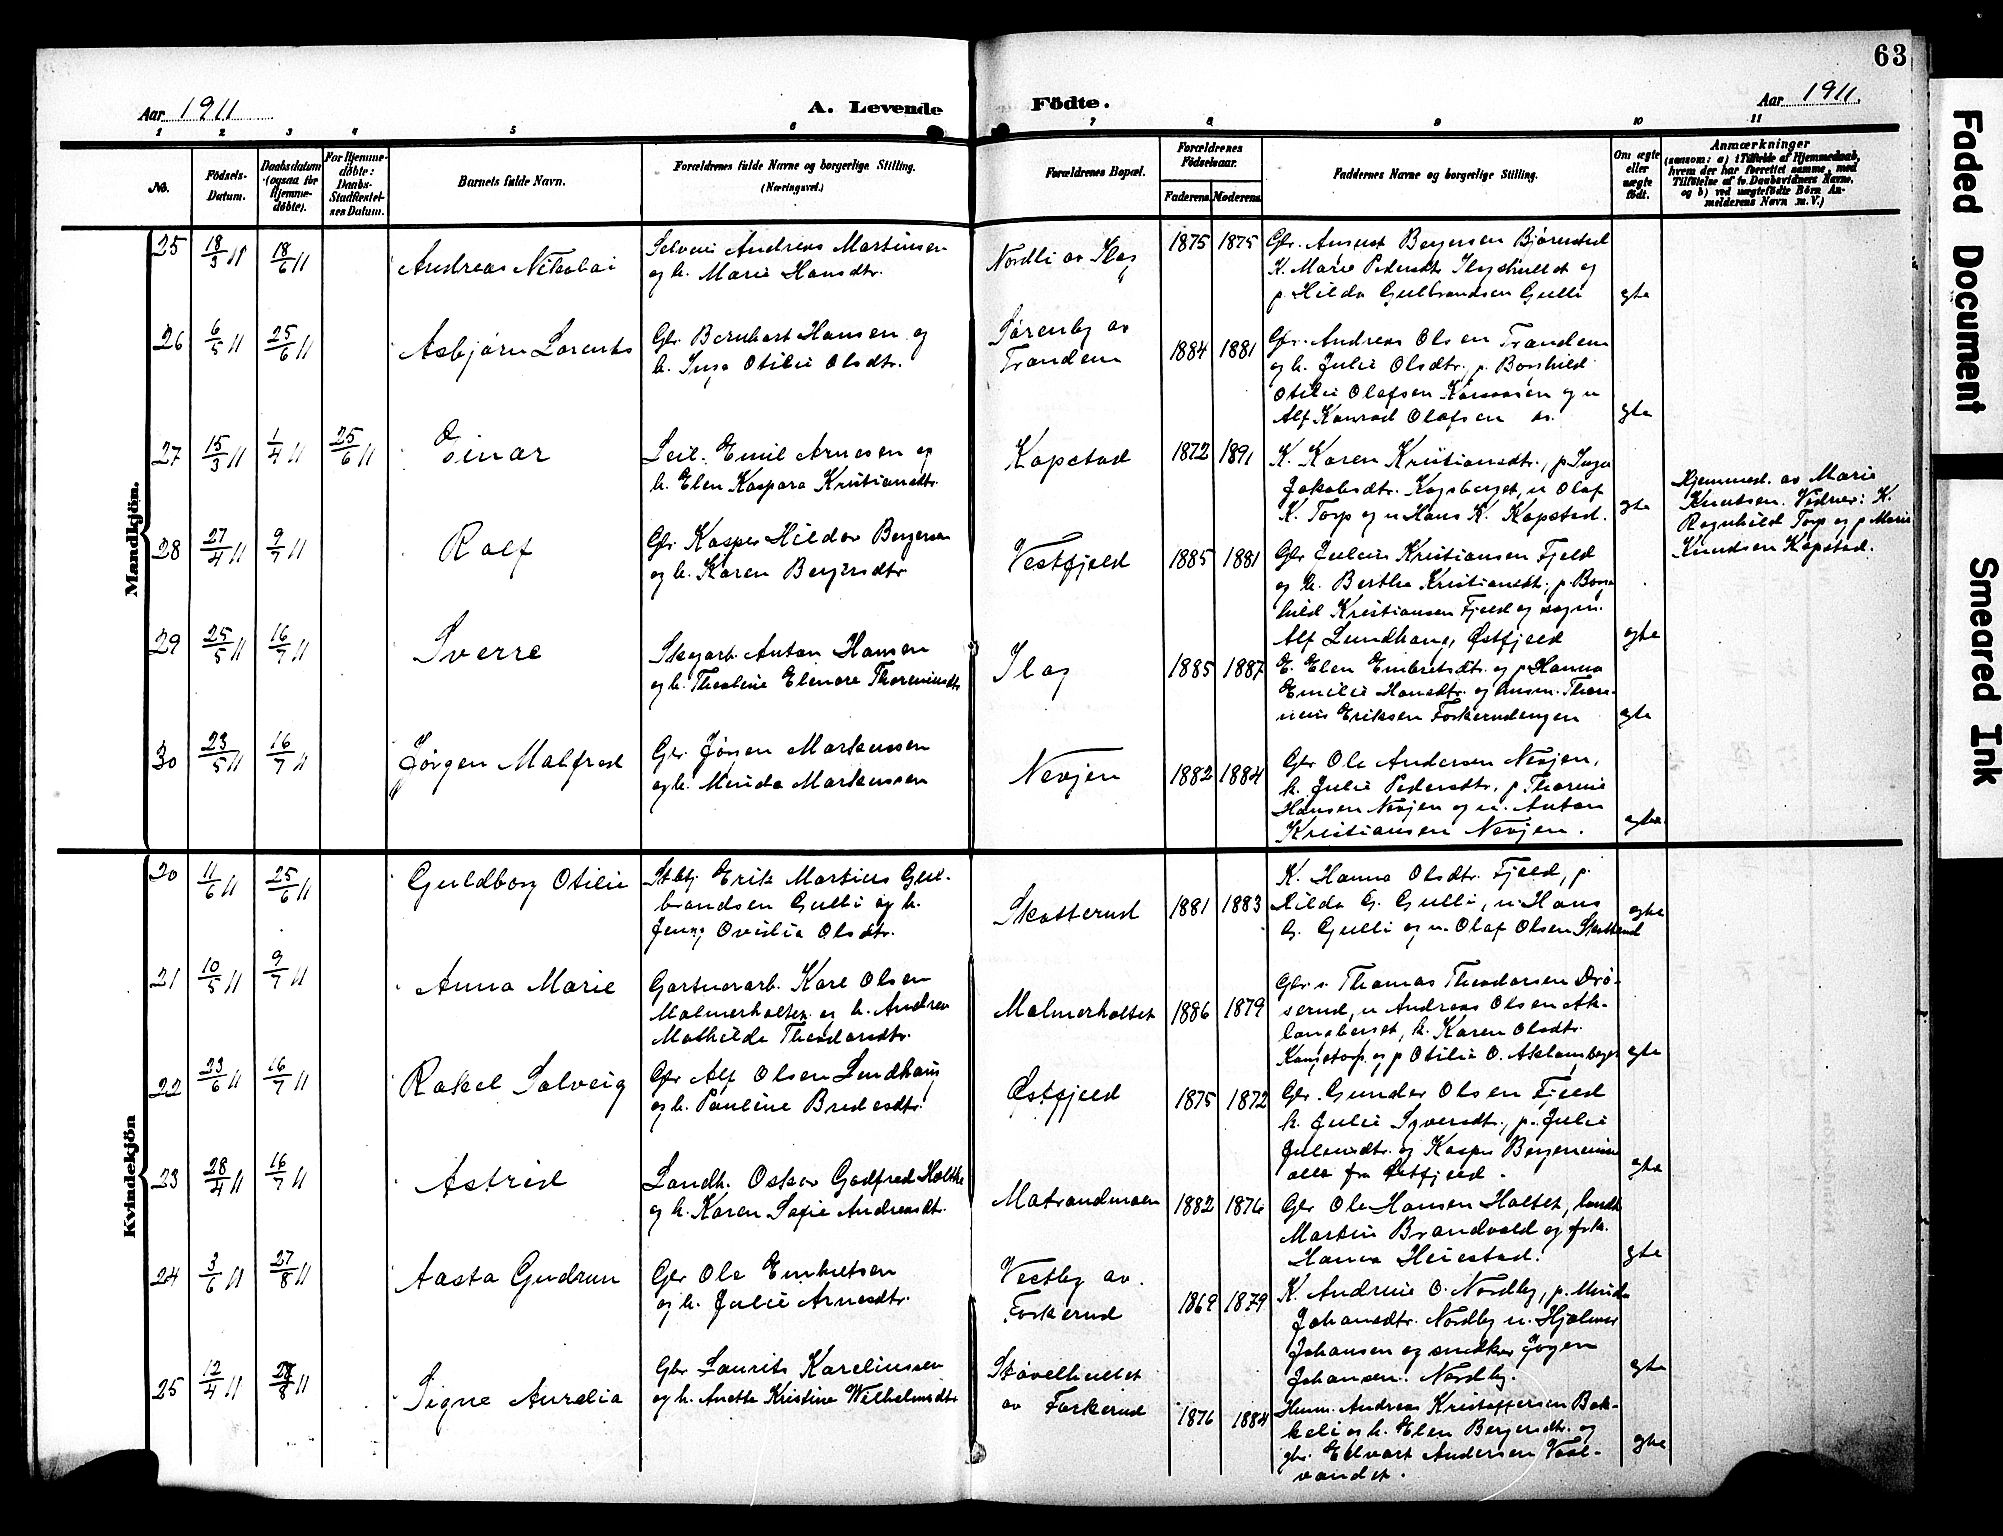 63
Aar 1911
A. Levende Födte.
Aar 1911.
1 2 3 4 5 6 7 8 9 10 11
No.
Födsels-Datum.
Daabsdatum (ogsaa for Hjemme-döbte).
For Hjemme-döbte: Daabs-Stadfæstel-sens Datum.
Barnets fulde Navn.
Forældrenes fulde Navne og borgerlige Stilling.
(Næringsvei.)
Forældrenes Bopæl.
Forældrenes Födselsaar.
Faderens Moderens
Faddernes Navne og borgerlige Stilling.
Om ægte eller uægte födt.
Anmærkninger
(saasom: a) i Tilfælde af Hjemmedaab, hvem der har forrettet samme, med Tilföielse af to Daabsvidners Navne, og b) ved uægtefödte Börn An-melderens Navn m. V.)
Mandkjön.
25 18/3 11 18/6 11 Andreas Nikolai
Selveier Andreas Martinsen
og h. Marie Hansdtr.
Nordli av Ilag
1875 1875
Gbr. August Bergersen Bjørnstad
K. Marie Pedersdtr. og
p. Hilda Gulbrandsen Gulli
egte
26 6/5 11 25/6 11 Asbjørn Lorents
Gbr. Bernhart Hansen og
h. Inga Otilie Olsdtr.
Sørenby av
Trandem
1884 1881
Gbr. Andreas Olsen Trandem
og h. Julie Olsdtr., p. Borghild
Otilie Olafsen og u
Alf Konrad Olafsen
egte
27 15/3 11 1/4 11 25/6 11 Einar
Leil. Emil Arnesen og
h. Elen Kaspara Kristiansdtr.
Kapstad
1872 1891
K. Karen Kristiansdtr., p. Inga
Jakobsdtr. Kogsberget, u Olaf
K. Torp og u Hans K. Kapstad.
egte
Hjemmed. av Marie
Knutsen. Vidner: K.
Ragnhild Torp og p Marie
Knudsen Kapstad.
28 27/4 11 9/7 11 Ralf
Gbr Kasper Hildor Bergersen
og h. Karen Bergersdtr
Vestfjeld
1885 1881
Gbr Julius Kristiansen Fjeld
og h. Berthe Kristiansdt., p. Borg-
hild Kristiansen Fjeld og
Alf Lundhaug, Østfjeld
egte
29 25/5 11 16/7 11 Sverre
Skogarb. Anton Hansen
og h. Theoline Elenore
Ilag
1885 1887
E. Elen Embretsdtr. og p Hanna
Emilie Hansdtr. og
Eriksen Foskerudengen
egte
30 23/5 11 16/7 11 Jørgen Malfred
Gbr. Jörgen Markussen
og h. Minda Markussen
Nevjen
1882 1884
Gbr Ole Andersen Nevjen,
k. Julie Pedersdtr., p. Thorine
Hansen Nevjen og u. Anton
Kristiansen Nevjen.
egte
Kvindekjön
20 11/6 11 25/6 11 Guldborg Otilie
Erik Martius Gul-
brandsen Gulli og h.
Jenny Ovidia Olsdtr.
Skotterud
1881 1883
K. Hanna Olsdtr. Fjeld, p.
Hilda G. Gulli, u. Hans
G. Gulli og u. Olaf Olsen Skotterud
egte
21 10/5 11 9/7 11 Anna Marie
Gartnerarb. Karl Olsen
Malmerholten og h. Andrea
Mathilde Theodorsdtr.
Malmerholtet
1886 1879
Gbr. s. Thomas Theodorsen Drö-
serud, u Andreas Olsen Ak-
langberget, k. Karen Olsdtr.
Kongstorp, og p Otilie O. Aklangberget
egte
22 23/6 11 16/7 11 Rakel Solveig
Gbr Alf Olsen Lundhaug
og h. Pauline Bredesdtr.
Østfjeld
1875 1872
Gbr. Gunder Olsen Fjeld
k. Julie Syversdtr., p. Julie
Juliusdtr. og Kasper Bergersen
alle fra Østfjeld.
egte
23 28/4 11 16/7 11 Astrid
Landh. Oskar Godfred Holthe
og h. Karen Sofie Andreasdtr.
Matrandmoen
1882 1876
Gbr Ole Hansen Holtet, landh
Martin Brandvold og frk.
Hanna Heiestad.
egte
24 3/6 11 27/8 11 Aasta Gudrun
Gbr Ole Embretsen
og h. Julie Arnesdtr.
Vestby av
Foskerud
1869 1879
K. Andrine O. Nordby, p. Minda
Johansdtr. Nordby u. Hjalmar
Johansen og snedker Jørgen
Johansen. Nordby.
egte
25 12/4 11 27/8 11 Signe Aurelia
Gbr Laurits Kareliussen
og h. Anette Kristine Wilhelmsdtr
Støvelhultet
av Foskerud
1876 1884
Husm. Andreas Kristoffersen Bak-
keli og h. Elen Bergersdtr. og
gbr. Edvart Andersen
vandet.
egte
Faded Document
Smeared Ink